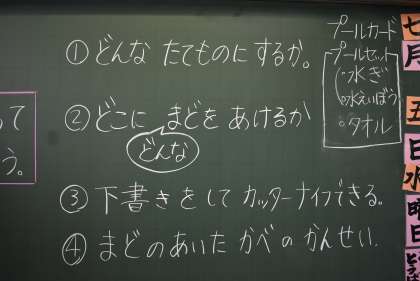 ① どんな たてものに するか。
② どこに まどを あけるか
どんな
③ 下書きをして カッターナイフできる。
④ まどのあいた かべの かんせい.
プールカード
プールセット
水ぎ
水えいぼう
タオル
って
う。
七月
五日
水曜日